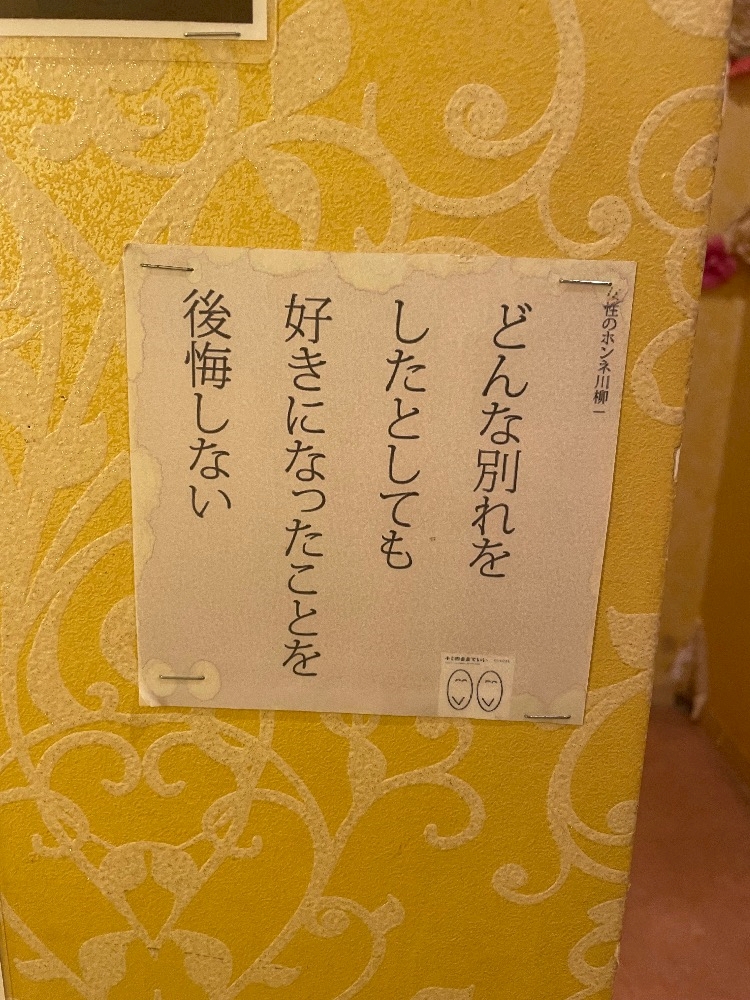 性のホンネ川柳
どんな別れを
したとしても
好きになったことを
後悔しない